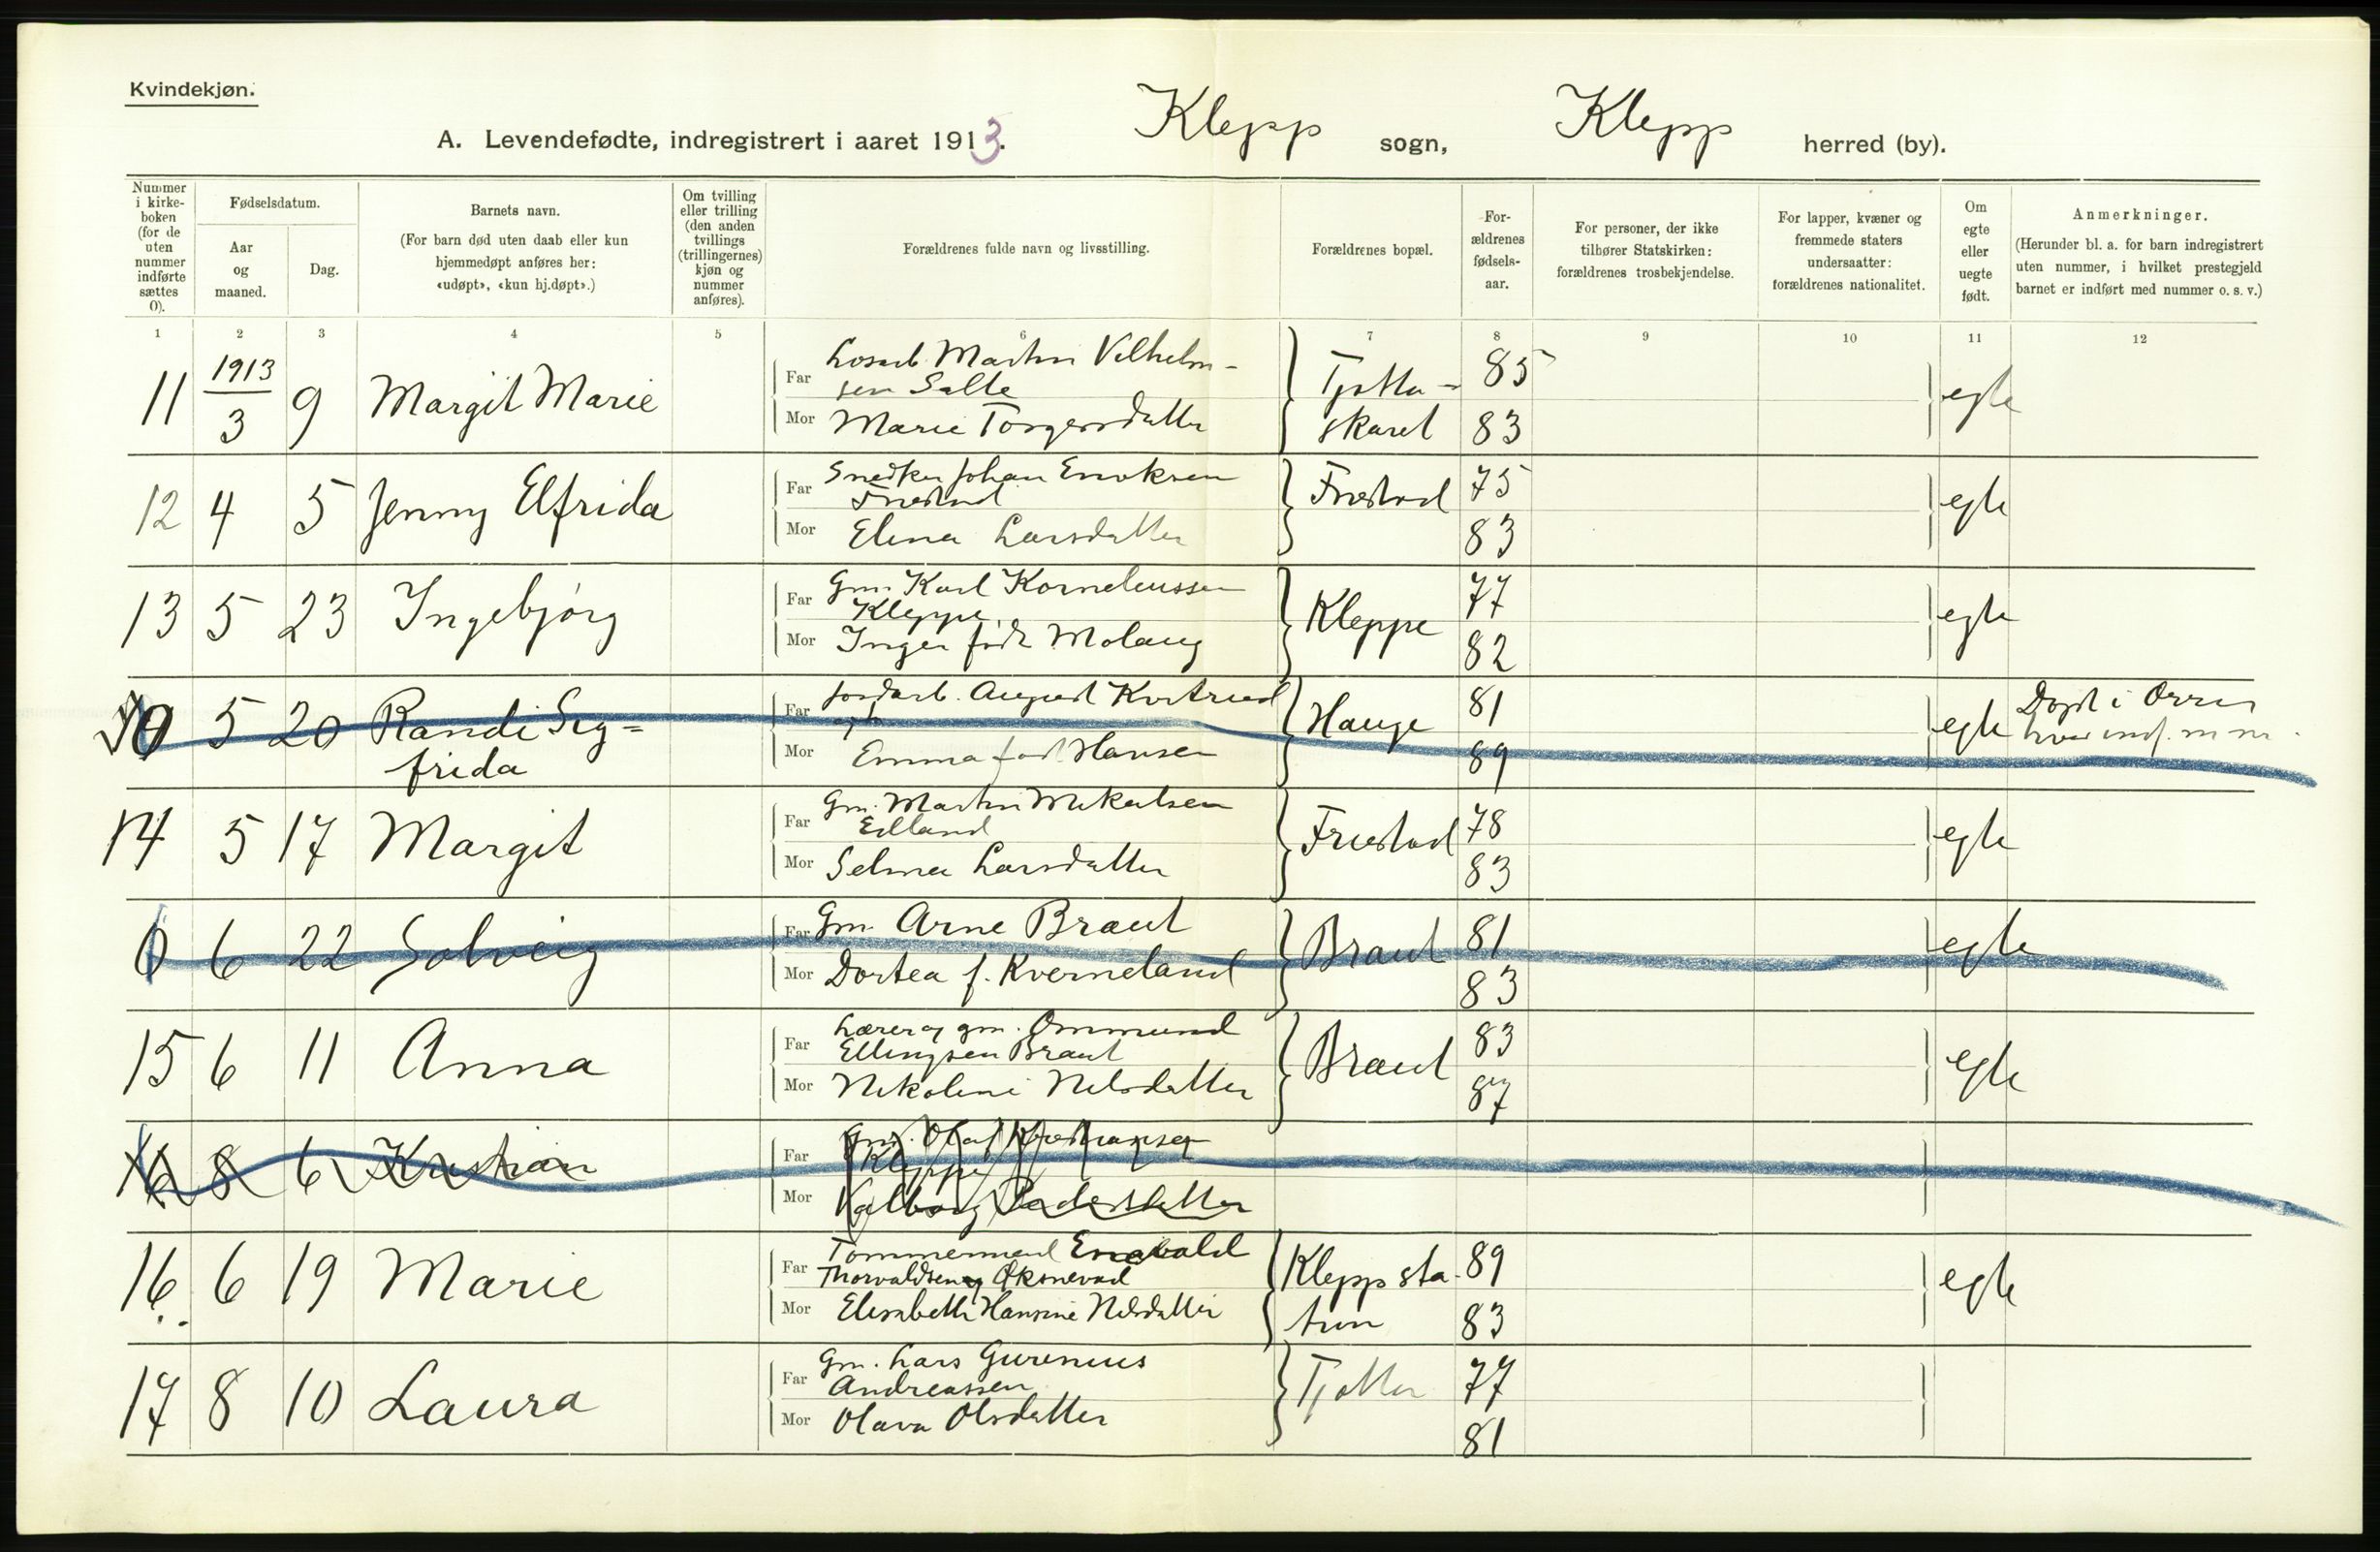 Kvindekjøn.
A. Levendefødte, indregistrert i aaret 1913. Klepp sogn, Klepp herred (by).
Nummer i kirkeboken (for de uten nummer indførte sættes 0).
Fødselsdatum.
Aar og maaned.
Dag.
Barnets navn.
(For barn død uten daab eller kun hjemmedøpt anføres her: «udøpt», «kun hj.døpt».)
Om tvilling eller trilling (den anden tvillings (trillingernes) kjøn og nummer anføres).
Forældrenes fulde navn og livsstilling.
Forældrenes bopæl.
Forældrenes fødselsaar.
For personer, der ikke tilhører Statskirken: forældrenes trosbekjendelse.
For lapper, kvæner og fremmede staters undersaatter: forældrenes nationalitet.
Om egte eller uegte født.
Anmerkninger.
(Herunder bl. a. for barn indregistrert uten nummer, i hvilket prestegjeld barnet er indført med nummer o. s. v.)
1 2 3 4 5 6 7 8 9 10 11 12
11 1913 3 9 Margit Marie
Far Martin Vilhelm-
sen Salte
Mor Marie Torgersdatter
Tjøtta-
skaret
85
83
egte
12 4 5 Jenny Elfrida
Far Snedker Johan Enoksen
Friestad
Mor Elina Larsdatter
Friestad
75
83
egte
13 5 23 Ingebjørg
Far Gm. Karl Korneliussen
Kleppe
Mor Inger født Molaug
Kleppe
77
82
egte
0 5 20 Randi Sig=
frida
Far August
Mor Emma født Hansen
Hauge
81
89
egte
Døpt i Orre
hvor indf. m nr.
14 5 17 Margit
Far Gm. Martin Mikalsen
Eilland
Mor Selma Larsdatter
Friestad
78
83
egte
0 6 22 Solveig
Far Gm. Arne Braut
Mor Dortea f. Kverneland
Braut
81
83
egte
15 6 11 Anna
Far Lærer og gm. Ommund
Ellingsen Braut
Mor Nikoline Nilsdatter
Braut
83
87
egte
16 8 6 Kristian
Far Gm. Olaf Kristiansen
Kleppe
Mor Valborg Pedersdatter
16 6 19 Marie
Far Tømmermand
Thorvaldsen Øksnevad
Mor Elisabeth Hansine Nilsdatter
Klepp sta-
tion
89
83
egte
17 8 10 Laura
Far Gm. Lars Gurenius
Andreassen
Mor Olava Olsdatter
Tjøtta
77
81